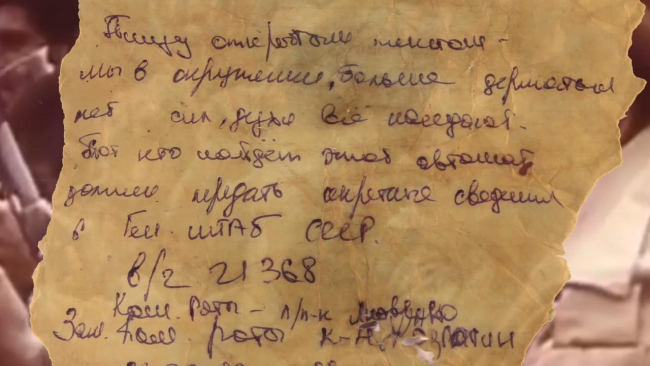 Пишу открытым текстом -
мы в окружении, больше держаться
нет сил, духи всё наседают.
Тот кто найдёт этот автомат
должен передать секретные сведения
в Ген. штаб СССР.
в/ч 21368
Ком. Роты - п/п-к
Зам. Ком роты к-н